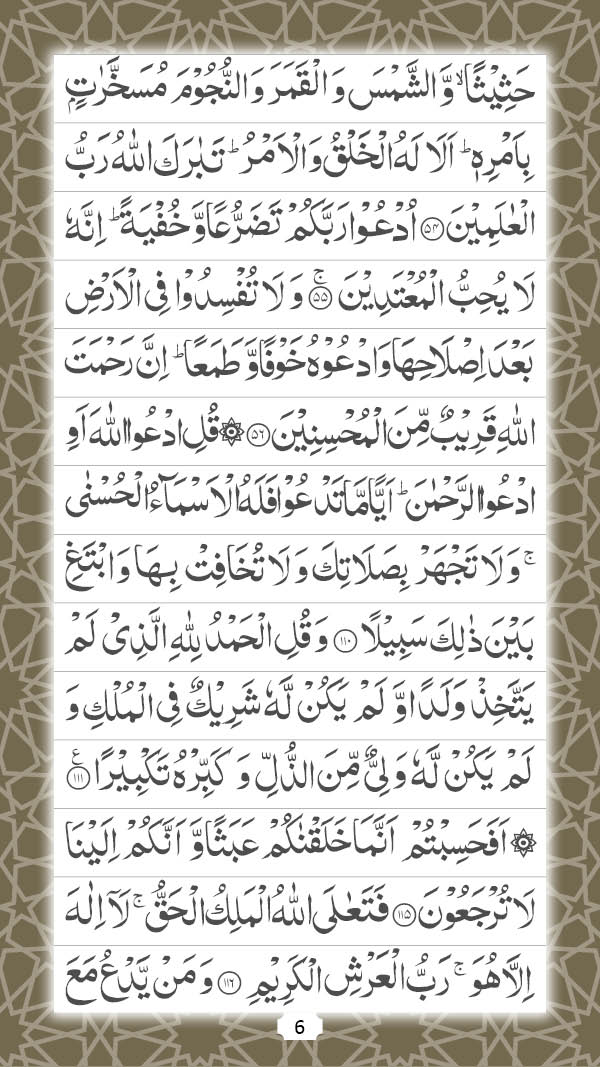 حَثِيْثًا ۙ وَّ الشَّمْسَ وَ الْقَمَرَ وَ النُّجُوْمَ مُسَخَّرٰتٍۭ
بِاَمْرِهٖ ؕ اَلَا لَهُ الْخَلْقُ وَ الْاَمْرُ ؕ تَبٰرَكَ اللّٰهُ رَبُّ
الْعٰلَمِيْنَ ﴿۵۴﴾ اُدْعُوْا رَبَّكُمْ تَضَرُّعًا وَّ خُفْيَةً ؕ اِنَّهٗ
لَا يُحِبُّ الْمُعْتَدِيْنَ ﴿ۚ۵۵﴾ وَ لَا تُفْسِدُوْا فِی الْاَرْضِ
بَعْدَ اِصْلَاحِهَا وَ ادْعُوْهُ خَوْفًا وَّ طَمَعًا ؕ اِنَّ رَحْمَتَ
اللّٰهِ قَرِيْبٌ مِّنَ الْمُحْسِنِيْنَ ﴿۵۶﴾ ۞ قُلِ ادْعُوا اللّٰهَ اَوِ
ادْعُوا الرَّحْمٰنَ ؕ اَيًّا مَّا تَدْعُوْا فَلَهُ الْاَسْمَآءُ الْحُسْنٰی
ۚ وَ لَا تَجْهَرْ بِصَلَاتِكَ وَ لَا تُخَافِتْ بِهَا وَ ابْتَغِ
بَيْنَ ذٰلِكَ سَبِيْلًا ﴿۱۱۰﴾ وَ قُلِ الْحَمْدُ لِلّٰهِ الَّذِیْ لَمْ
يَتَّخِذْ وَلَدًا وَّ لَمْ يَكُنْ لَّهٗ شَرِيْكٌ فِی الْمُلْكِ وَ
لَمْ يَكُنْ لَّهٗ وَلِیٌّ مِّنَ الذُّلِّ وَ كَبِّرْهُ تَكْبِيْرًا ﴿۱۱۱﴾ع
۞ اَفَحَسِبْتُمْ اَنَّمَا خَلَقْنٰكُمْ عَبَثًا وَّ اَنَّكُمْ اِلَيْنَا
لَا تُرْجَعُوْنَ ﴿۱۱۵﴾ فَتَعٰلَی اللّٰهُ الْمَلِكُ الْحَقُّ ۚ لَاۤ اِلٰهَ
اِلَّا هُوَ ۚ رَبُّ الْعَرْشِ الْكَرِيْمِ ﴿۱۱۶﴾ وَ مَنْ يَّدْعُ مَعَ
6